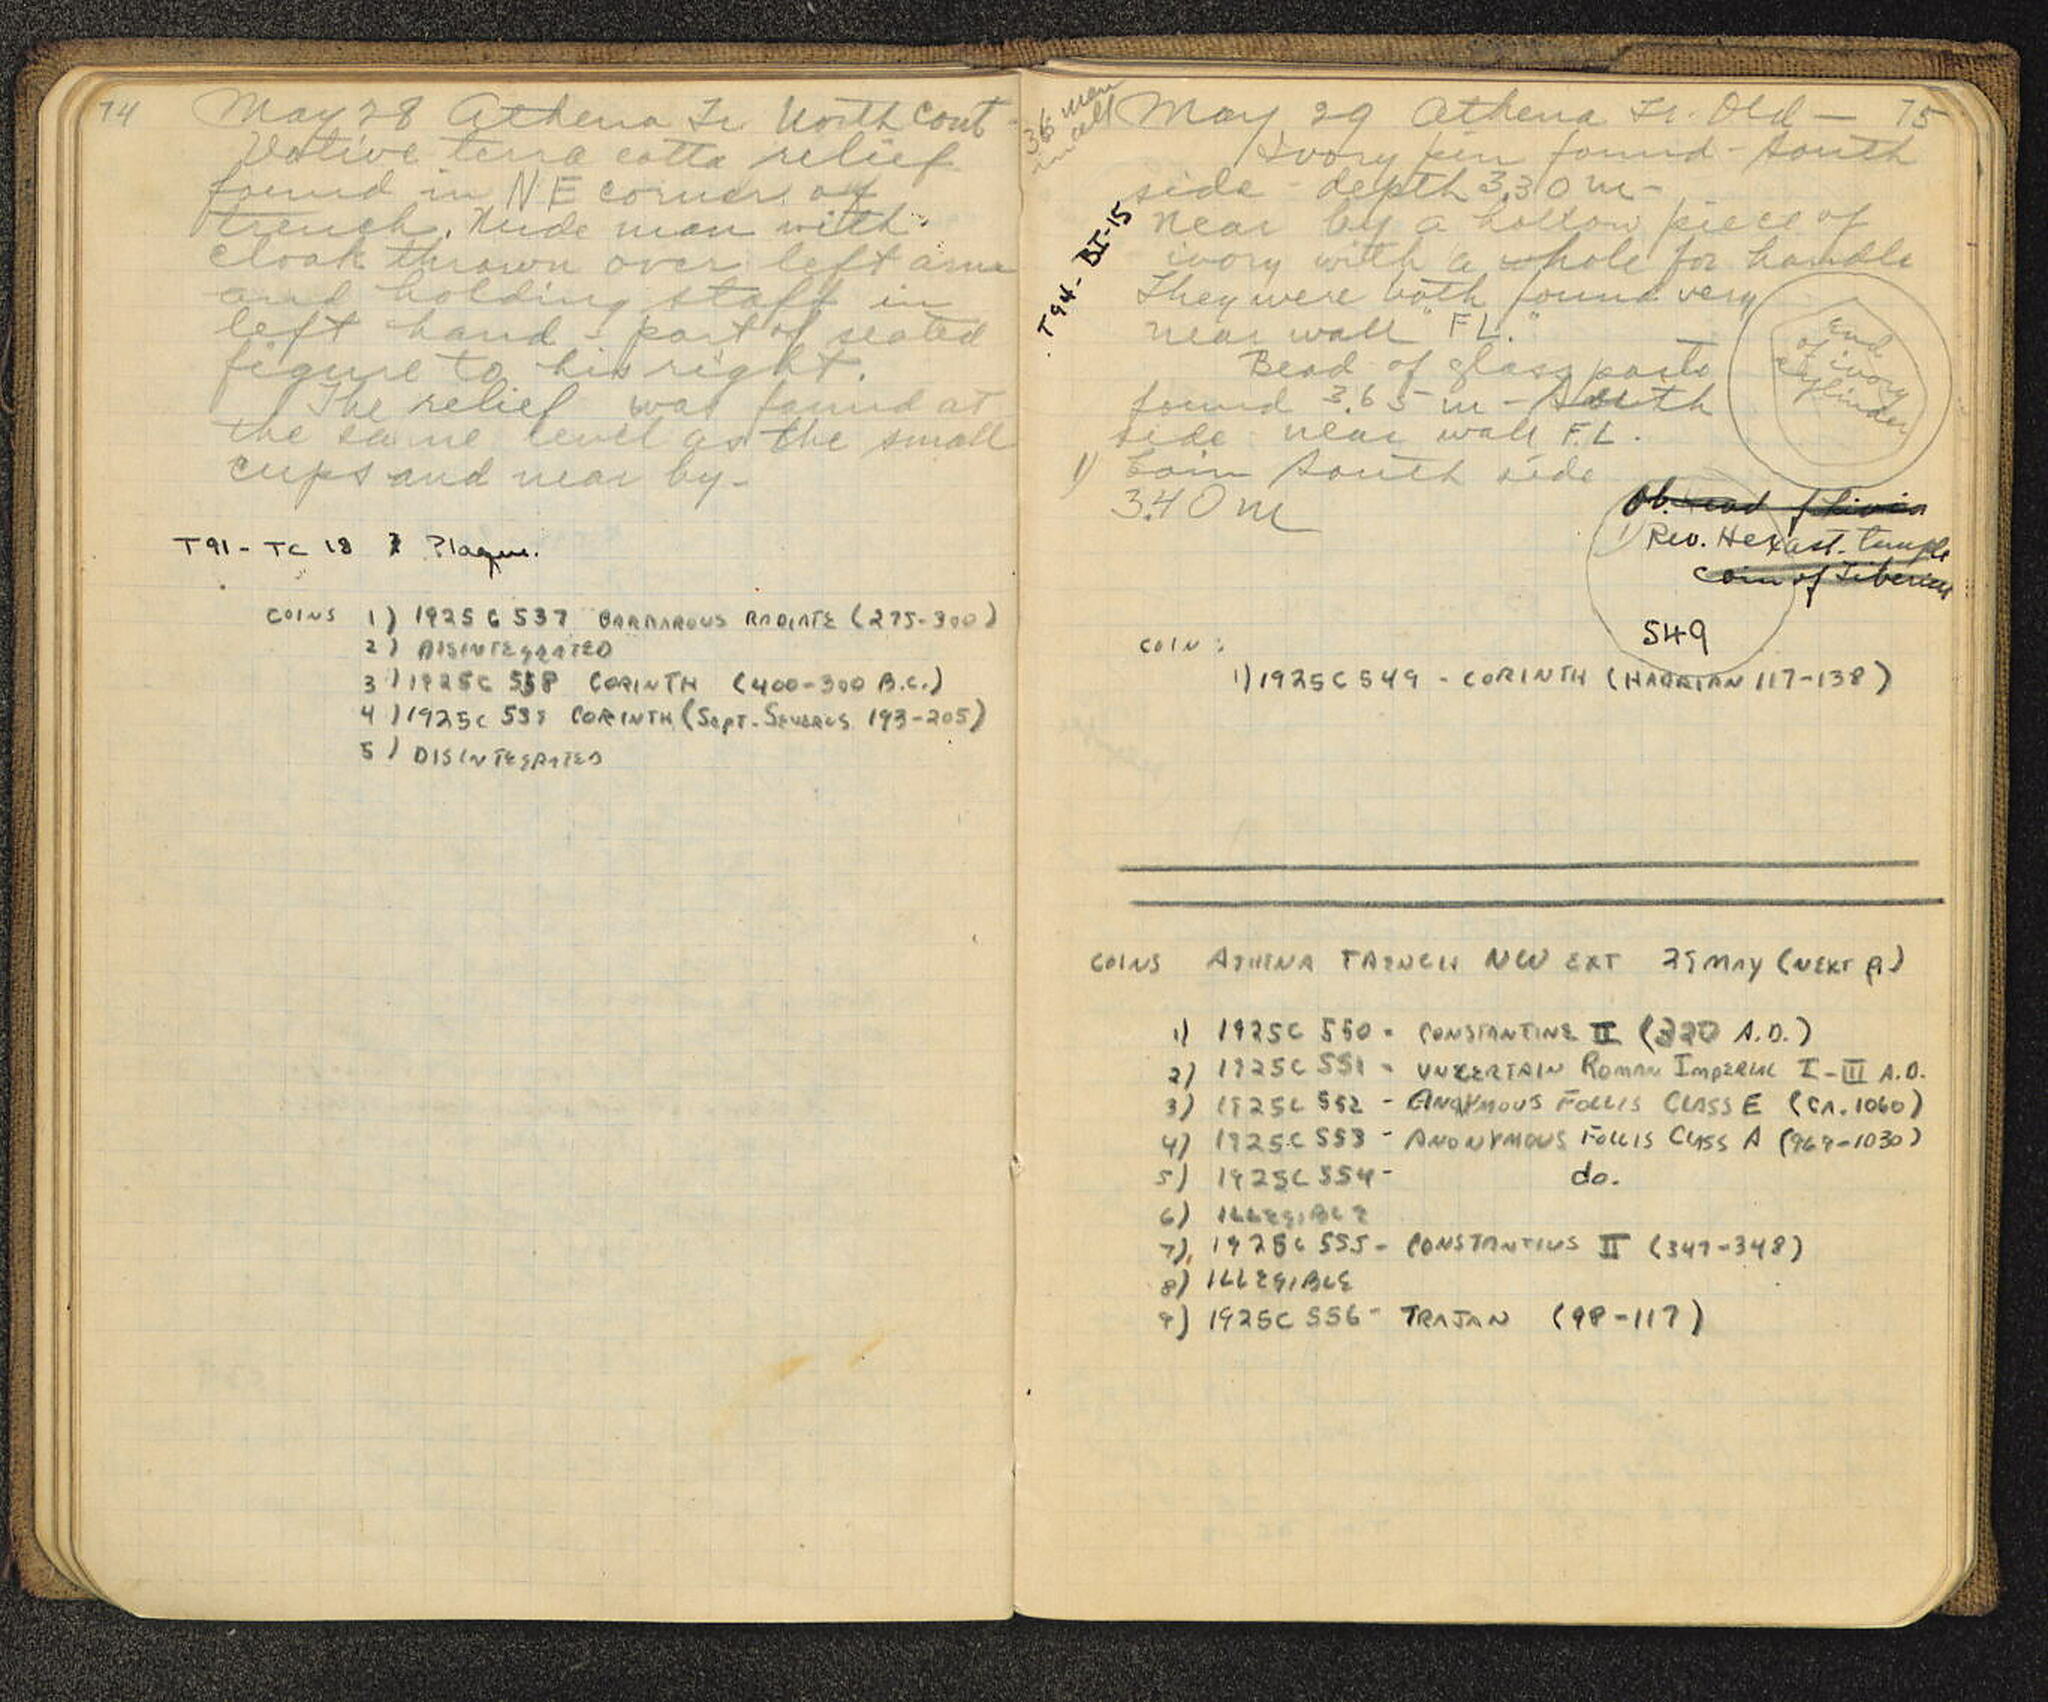 74 May 28 Athena Tr. North Cont-
Votive terra cotta relief
found in NE corner of
trench. Nude man with
cloak thrown over left arm
and holding staff in
left hand - part of seated
figure to his right.
The relief was found at
the same level as the small
cups and near by -
T91 - TC 18 Plaque.
COINS 1) 1925 C 537 BARBAROUS RADIATE (275-300)
2) DISINTEGRATED
3) 1925 C 538 CORINTH (400-300 B.C.)
4) 1925 C 539 CORINTH (SEPT. SEVERUS 193-205)
5) DISINTEGRATED
36 men
in all
May 29 Athena Tr. Old - 75
Ivory pin found - South
side - depth 3.30 m -
Near by a hollow piece of
ivory with a whole for handle
They were both found very
near wall "FL."
T94 - BI-15
End
of ivory
cylinder
Bead of glass paste
found 3.65 m - South
side near wall F.L.
1) Coin South side
3.40 m
Ob. head of Livia
1) Rev. Hexast. temple
coin of Tiberius
549
COIN:
1) 1925 C 549 - CORINTH (HADRIAN 117-138)
COINS ATHENA TRENCH NW EXT 29 MAY (NEXT P.)
1) 1925 C 550 - CONSTANTINE II (320 A.D.)
2) 1925 C 551 - UNCERTAIN ROMAN IMPERIAL I-III A.D.
3) 1925 C 552 - ANONYMOUS FOLLIS CLASS E (CA. 1060)
4) 1925 C 553 - ANONYMOUS FOLLIS CLASS A (969-1030)
5) 1925 C 554 - do.
6) ILLEGIBLE
7) 1925 C 555 - CONSTANTIUS II (347-348)
8) ILLEGIBLE
9) 1925 C 556 - TRAJAN (98-117)